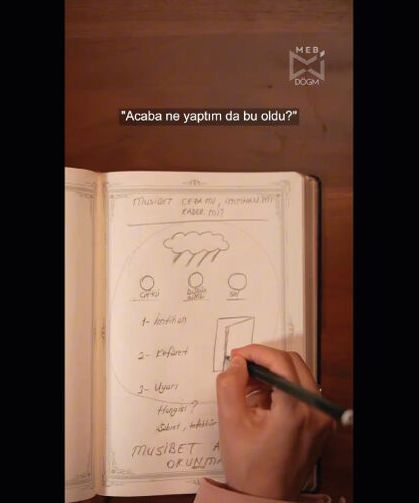 MEB
DÖGM
"Acaba ne yaptım da bu oldu?"
MUSİBET CEZA MI, İMTİHAN MI
KADER Mİ?
1- İmtihan
2- Kefaret
3- Uyarı
Hangisi?
Sabret, tefekkür
MUSİBET A
OKUNMA